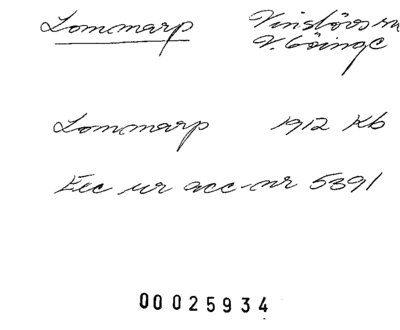 Lommarp Vinslövs sn
V. Göinge
Lommarp 1912 Kb
Exc ur acc-nr 5391
00025934